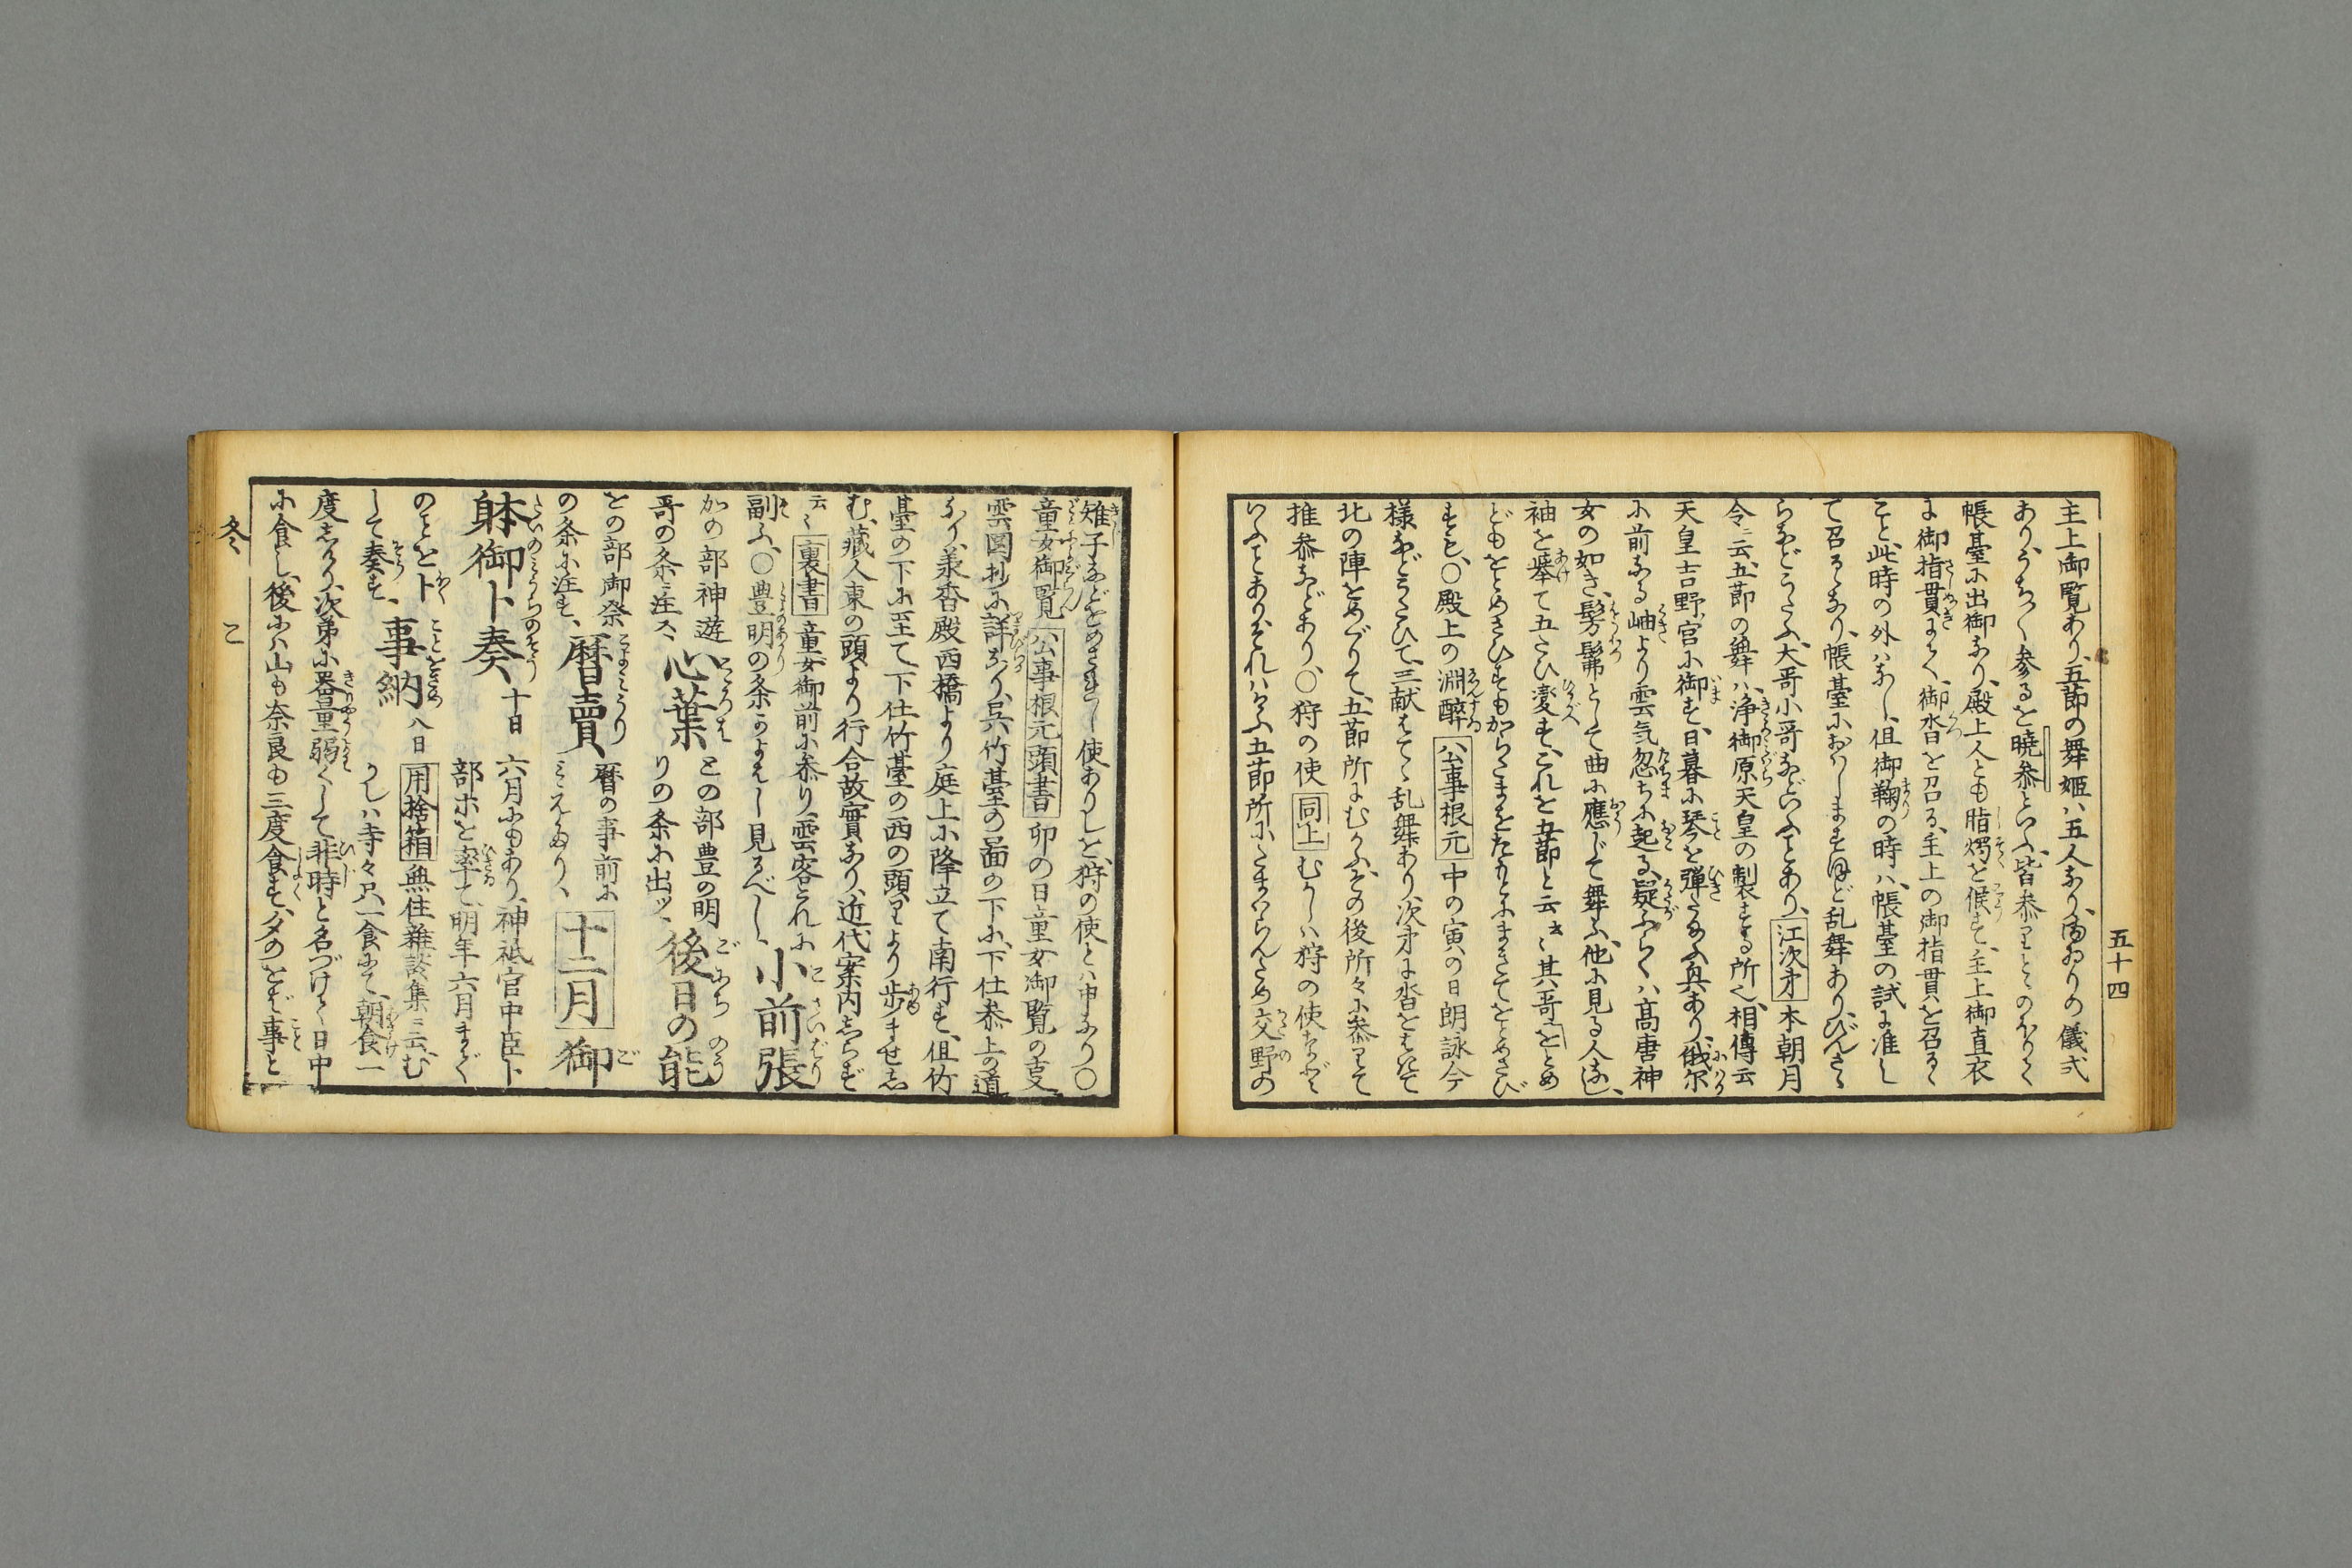 主上御覧あり、五節の舞姫ハ五人なり、まゐりの儀式
あり、うちつゞく参るを暁参といふ、皆参りとゝのほりて
帳臺に出御なり、殿上人とも脂燭を候す、主上御直衣
に御指貫めして、御沓を召る、主上の御指貫を召るゝ
こと、此時の外ハなし、但御鞠の時ハ、帳臺の試に准し
て召るゝなり、帳臺におハしますほど乱舞あり、びんさゝ
らなどうたふ、大哥小哥などいふことあり、江次才本朝月
令ニ云、五節の舞ハ、浄御原天皇の製する所也、相傳云
天皇吉野宮に御す、日暮に琴を弾たまふ興あり、俄尓
に前なる岫より雲気忽ちに起る、疑ふらくハ高唐神
女の如き、髣髴として曲に應じて舞ふ、他に見る人なし、
袖を挙て五たひ変す、これを五節と云云、其哥にをとめ
どもをとめさひすもからたまをたもとにまきてをとめさび
すも、○殿上の淵醉公事根元中の寅の日朗詠今
様などうたひて、三献はてゝ乱舞あり、次才に沓をはきて
北の陣をめぐりて、五節所にむかふ、その後所々に参りて
推参などあり、○狩の使同上むかしハ狩の使などゝ
いふことありそれハけふ五節所にたまハらんため交野の
五十四
雉子などをめされし使ありしを、狩の使とハ申なり○
童女御覧公事根元頭書卯の日童女御覧の事
雲図抄に詳なり、呉竹臺の畾の下に、下仕参上の道
なり、承香殿西橋より庭上に降立て南行す、但竹
臺の下に至て、下仕竹臺の西の頭より歩ませし
む、蔵人東の頭より行合故實あり、近代案内しらず
云〻裏書童女御前に参り、雲客これに
副ふ、○豊明の条かよハし見るべし、小前張
かの部神遊
哥の条ニ注ス、心葉との部豊の明
りの条に出ッ、後日の能
をの部御祭
の条に注す、暦賣暦の事前に
ミえたり、十二月御
躰御卜奏十日六月にもあり、神祇官中臣卜
部ホを率て、明年六月まで
のことを卜
して奏す、事納八日用捨箱無住雑談集ニ云、む
かしハ寺々只一食にて、朝食一
度しけり、次第に器量弱くして非時と名づけて日中
に食し、後にハ山も奈良も三度食す、夕のをば事と
冬
こ